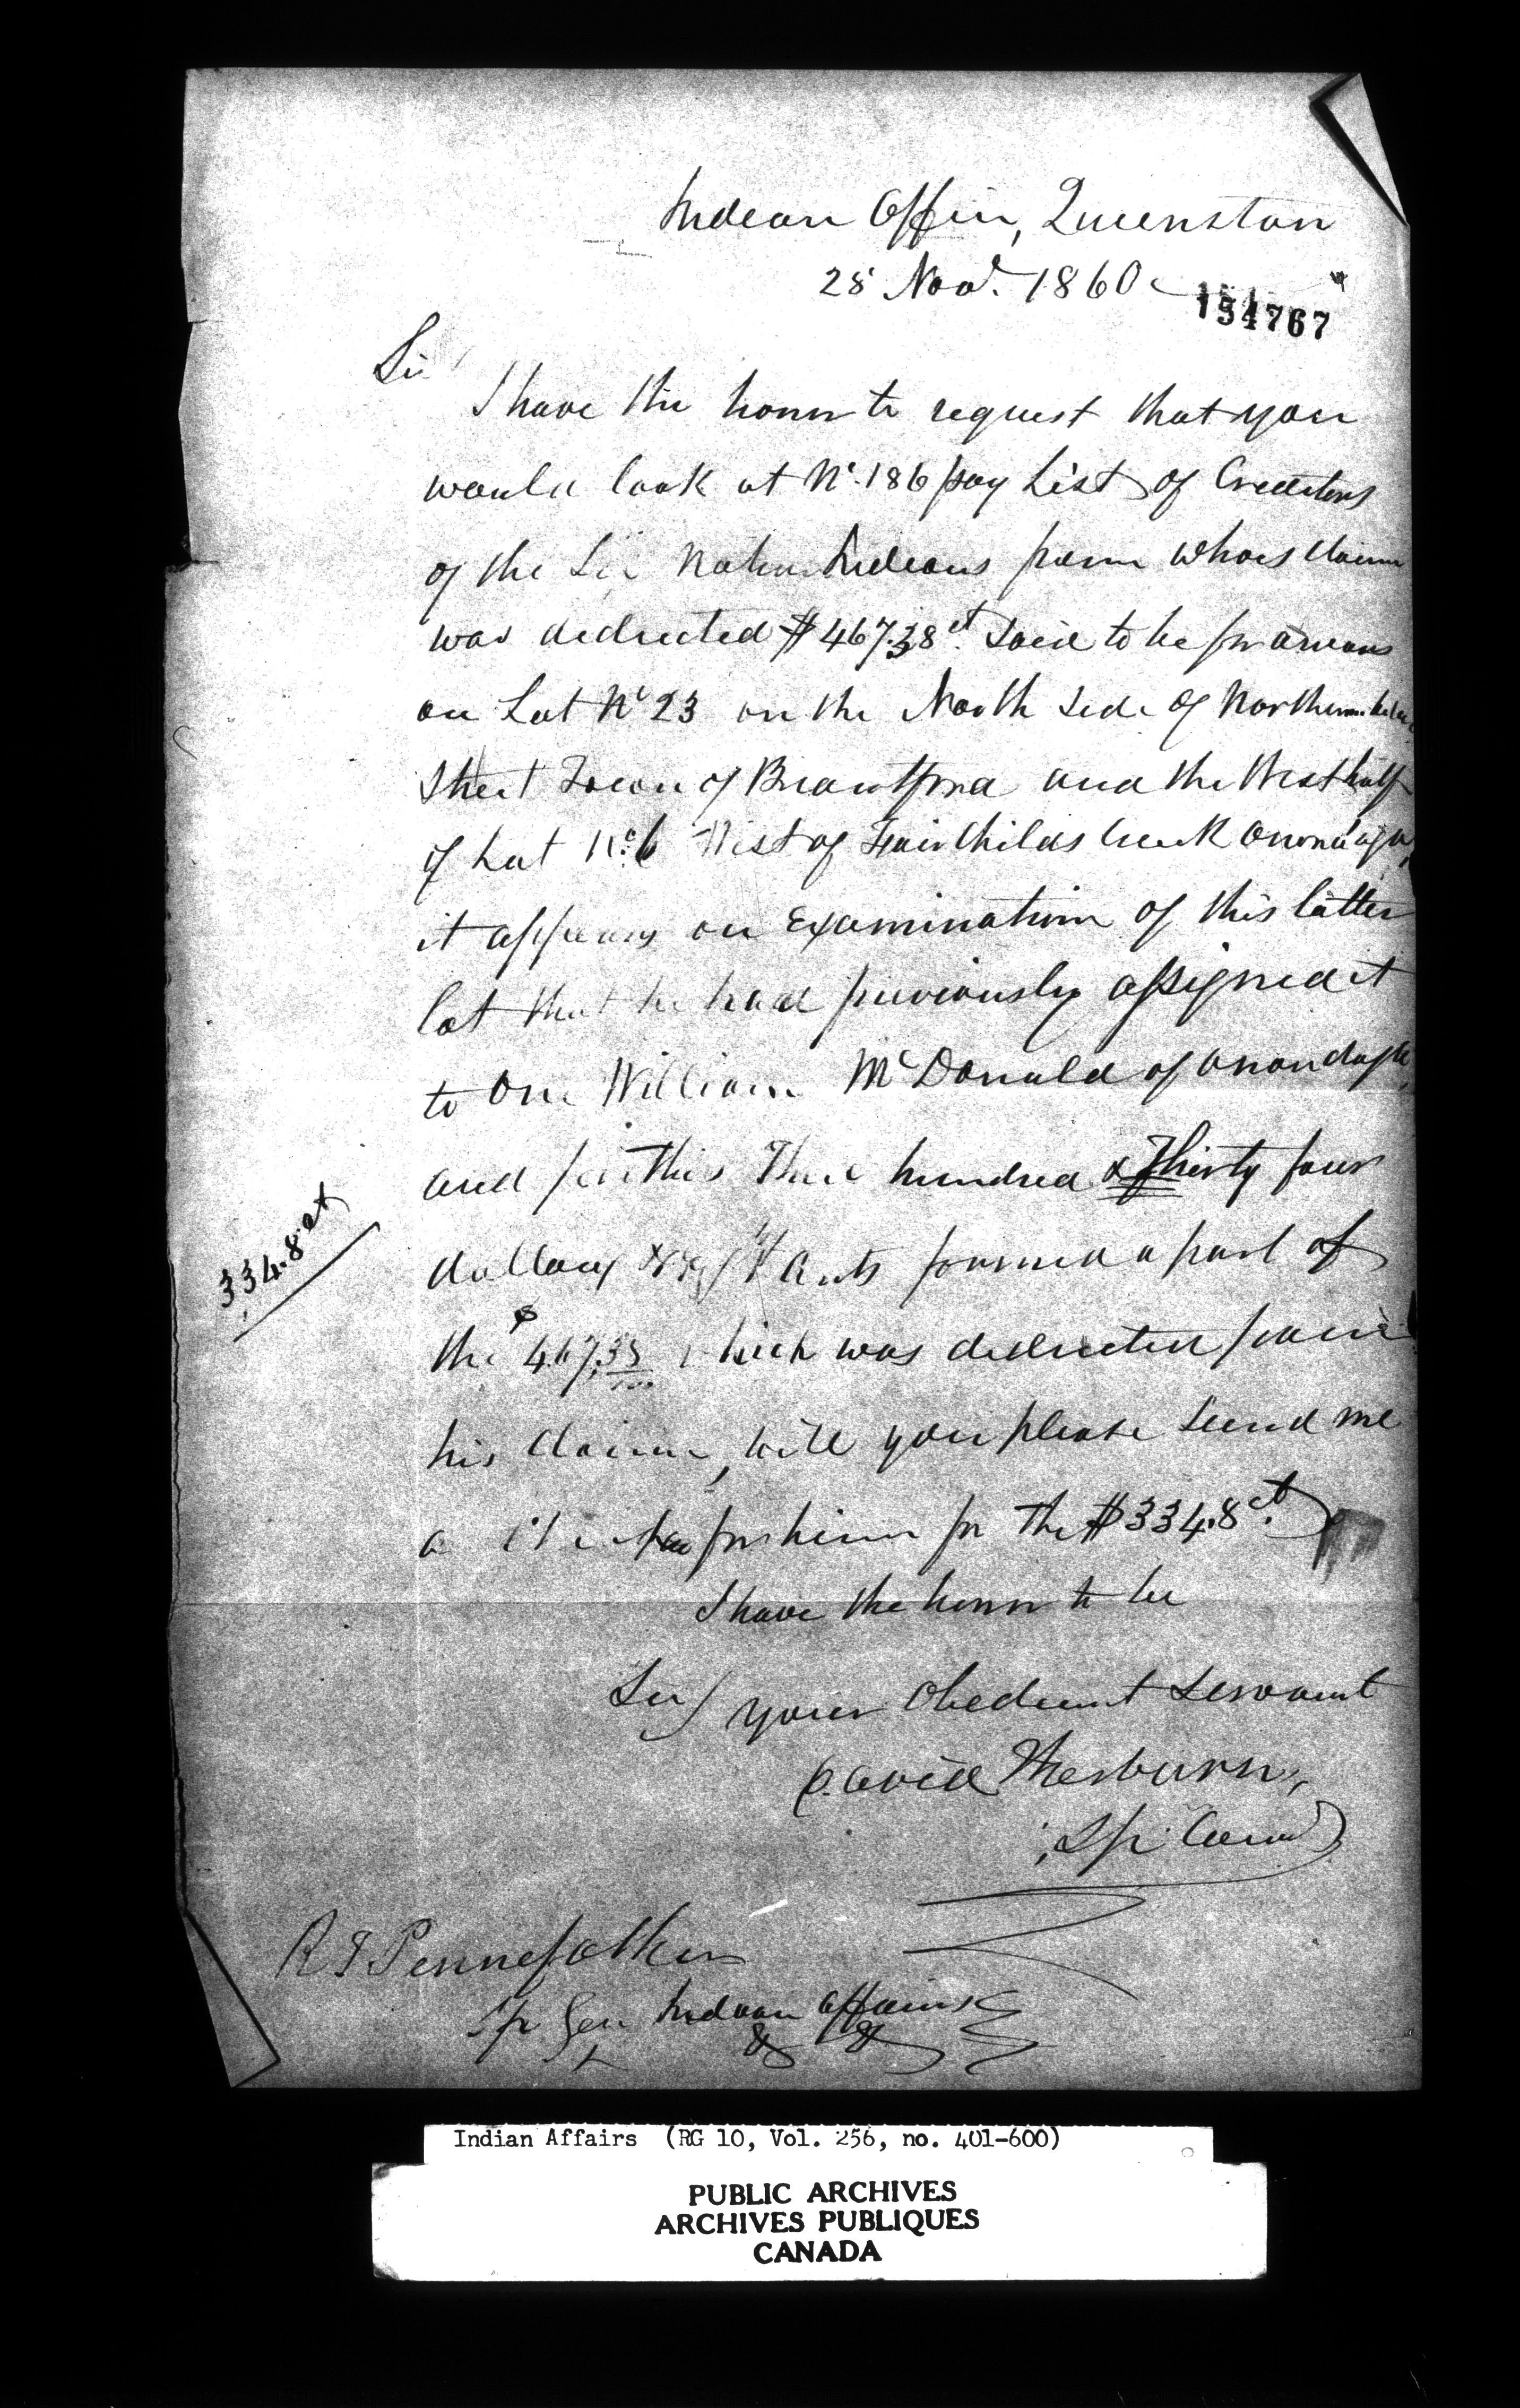 Indian Office, Queenston
28 Novr. 1860
154767
Sir
I have the honor to request that you
would look at No. 186 pay List of Creditors
of the Six Nation Indians from whoes claim
was deducted $467.38 ct. Said to be for arrears
on Lot No 23 on the North Side of Northumberland
Street Town of Brantford and the West half
of Lot No. 6 West of Fairchilds Creek Onondaga,
it appears on Examination of this latter
lot that he had previously assigned it
to One William McDonald of Onondaga,
and for this Three hundred & Thirty four
dollars & Eight Cents formed a part of
the $467.38 which was deducted from
his claim, will you please Send me
a for him for the $334.8 ct.
334.8 ct
I have the honor to be
Sir/ your Obedient Servant
David Thorburn,
Spl. Comr
R T Pennefather
Sp Gen Indian Affairs
& &
Indian Affairs (RG 10, Vol. 256, no. 401-600)
PUBLIC ARCHIVES
ARCHIVES PUBLIQUES
CANADA